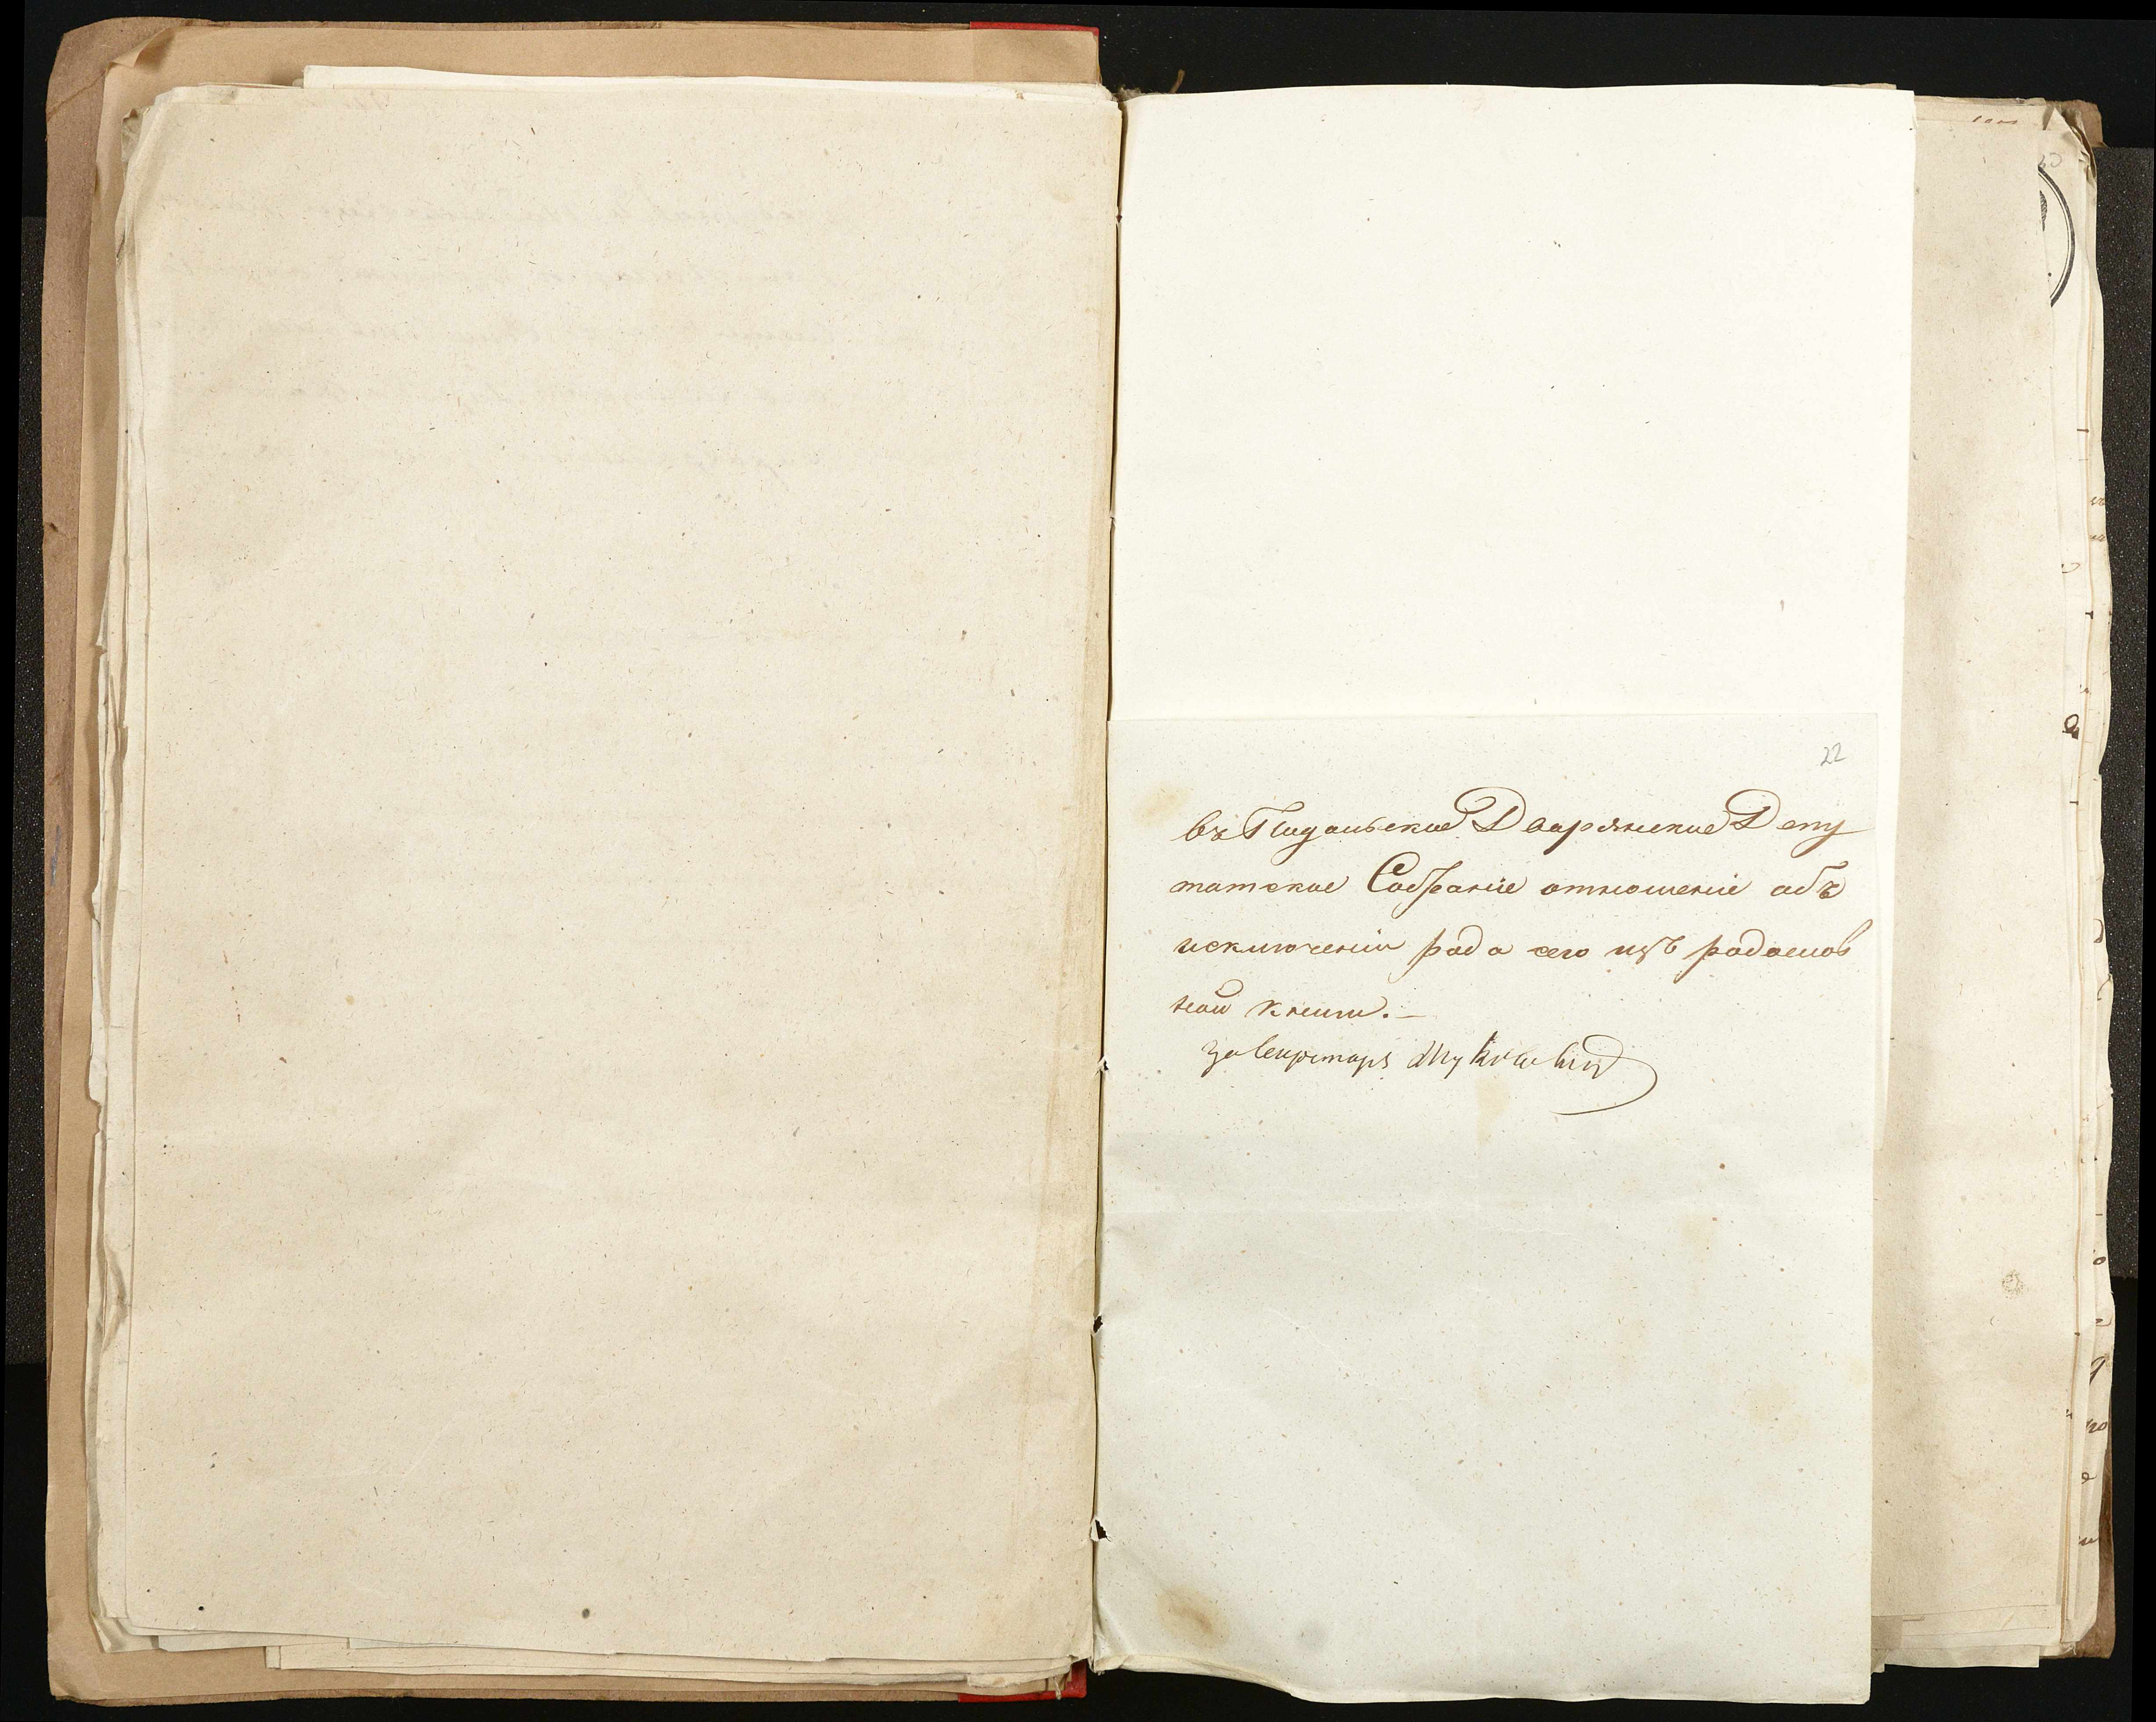 22
въ Подольское Дворянское Депу
татское Собраніе отношеніе объ
исключеніи рода сего изъ родослов
ной книги.—
За Секретаря